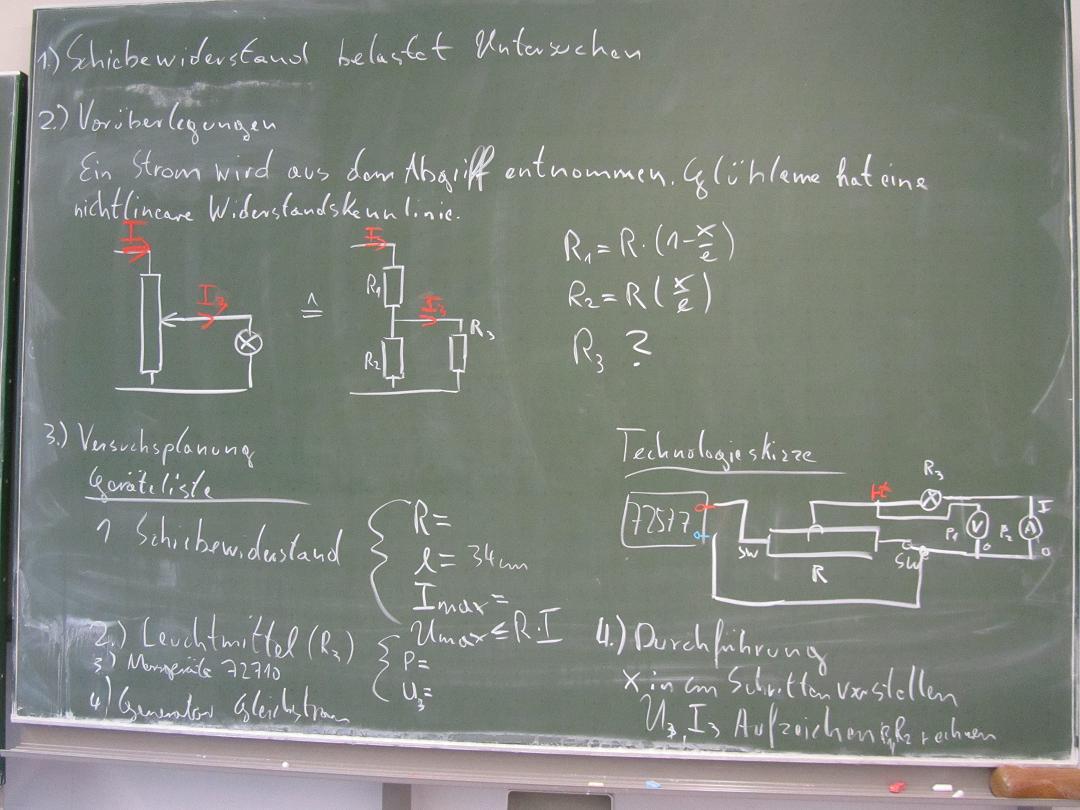 1.) Schiebewiderstand belastet Untersuchen
2.) Vorüberlegungen
Ein Strom wird aus dem Abgriff entnommen. Glühlame hat eine
nichtlineare Widerstandskennlinie.
I
I3
≙
I
R1
I3
R2
R3
R1 = R · (1 - x/e)
R2 = R (x/e)
R3 ?
3.) Versuchsplanung
Geräteliste
1 Schiebewiderstand
R =
l = 34cm
Imax =
Umax ≤ R·I
2.) Leuchtmittel (R3)
P =
U3 =
3) Messgeräte 72710
4) Generator Gleichstrom
Technologieskizze
72577
SW
R
SW
rt
R3
P1
V
0
P2
I
A
0
4.) Durchführung
x in cm Schritten verstellen
U3, I3 Aufzeichen R2 rechnen